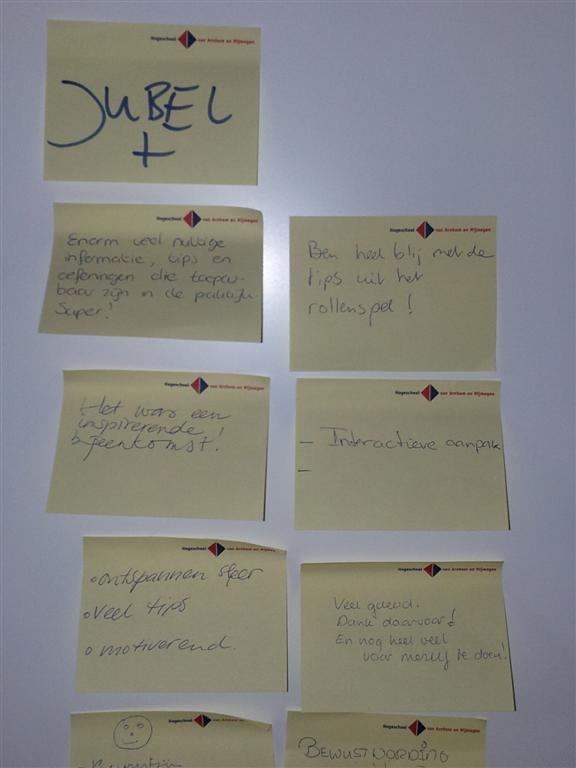 Hogeschool van Arnhem en Nijmegen
JUBEL
+
Hogeschool van Arnhem en Nijmegen
Enorm veel nuttige
informatie, tips en
oefeningen die toepas-
baar zijn in de praktijk.
Super!
Hogeschool van Arnhem en Nijmegen
Ben heel blij met de
tips uit het
rollenspel!
Hogeschool van Arnhem en Nijmegen
Het was een
inspirerende
bijeenkomst!
Hogeschool van Arnhem en Nijmegen
- Interactieve aanpak
-
Hogeschool van Arnhem en Nijmegen
o ontspannen sfeer
o veel tips
o motiverend.
Hogeschool van Arnhem en Nijmegen
Veel geleerd.
Dank daarvoor!
En nog heel veel
voor mezelf te doen!
Hogeschool van Arnhem en Nijmegen
Hogeschool van Arnhem en Nijmegen
BEWUSTWORDING